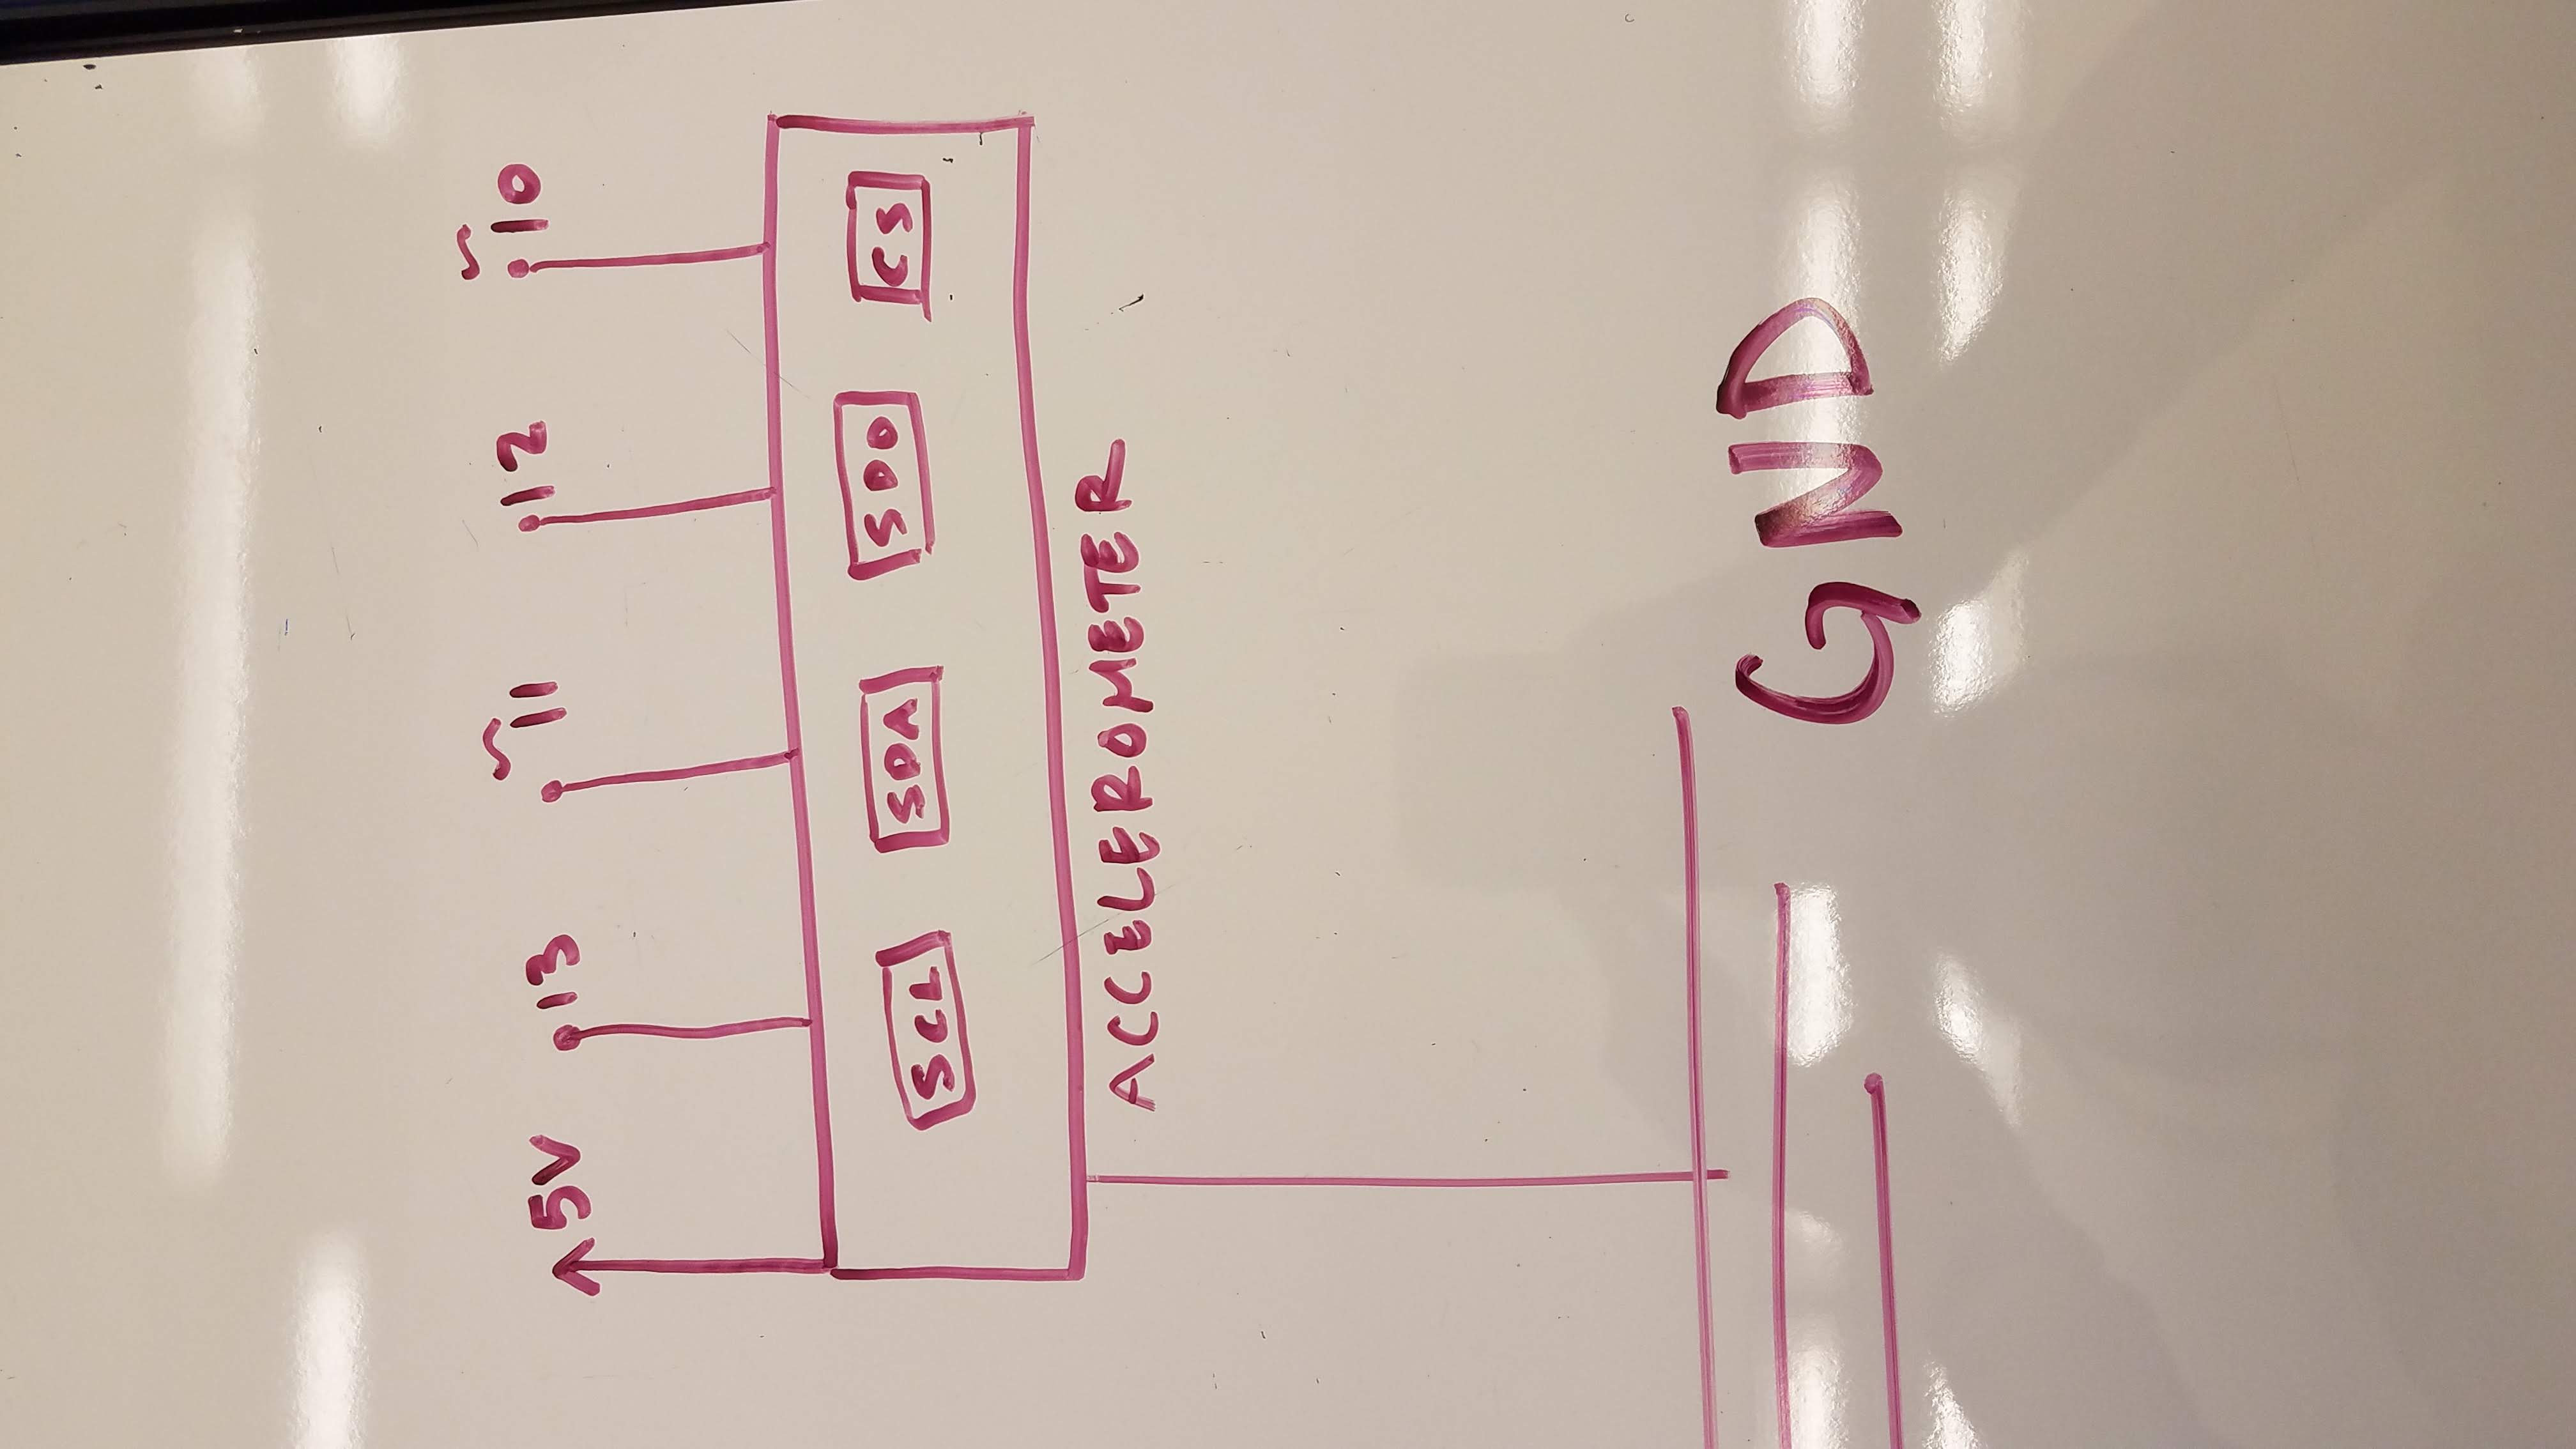 5V 13 ~11 12 ~10
SCL SDA SDO CS
ACCELEROMETER
GND